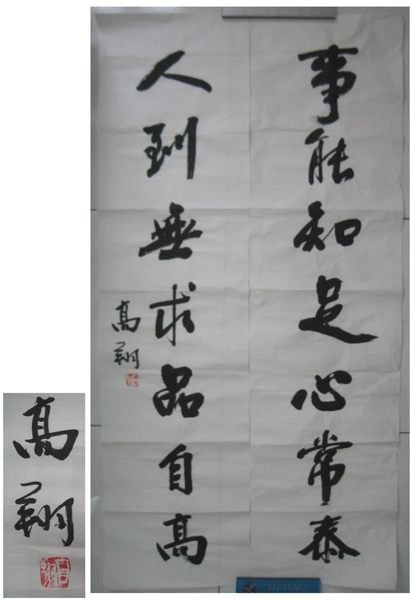 事能知足心常泰
人到無求品自高
高翔
高翔